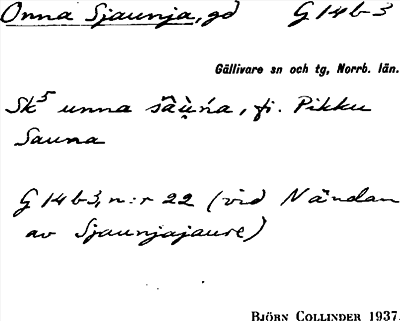 Onna Sjaunja, gd G 14 b 3
Gällivare sn och tg, Norrb. län.
Sk⁵ unna sā̂ụ̀ńa, fi. Pikku
Sauna
G 14 b 3, n:r 22 (vid Nändan
av Sjaunjajaure)
BJÖRN COLLINDER 1937.